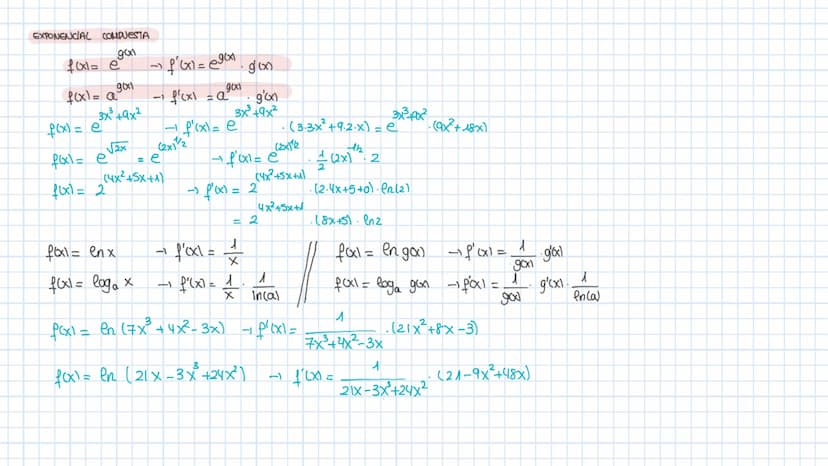 EXPONENCIAL COMPUESTA
f(x) = e^g(x) → f'(x) = e^g(x) · g(x)
f(x) = a^g(x) → f'(x) = a^g(x) · g'(x)
f(x) = e^(3x³+9x²) → f'(x) = e^(3x³+9x²) · (3·3x² + 9·2·x) = e^(3x³+9x²) · (9x²+18x)
f(x) = e^√2x = e^(2x)^1/2 → f'(x) = e^(2x)^1/2 · 1/2 (2x)^-1/2 · 2
f(x) = 2^(4x²+5x+1) → f'(x) = 2^(4x²+5x+1) · (2·4x+5+0) · ln(2)
= 2^(4x²+5x+1) · (8x+5) · ln2
f(x) = ln x → f'(x) = 1/x // f(x) = ln g(x) → f'(x) = 1/g(x) · g'(x)
f(x) = logₐ x → f'(x) = 1/x · 1/ln(a) // f(x) = logₐ g(x) → f'(x) = 1/g(x) · g'(x) · 1/ln(a)
f(x) = ln (7x³ + 4x² - 3x) → f'(x) = 1/(7x³+4x²-3x) · (21x²+8x-3)
f(x) = ln (21x - 3x³ + 24x²) → f'(x) = 1/(21x-3x³+24x²) · (21-9x²+48x)